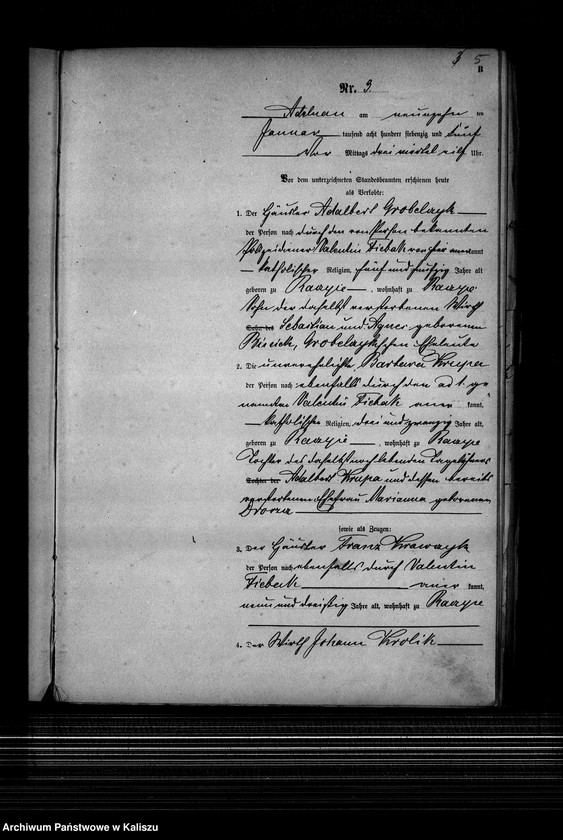 5
B
Nr. 3.
Adelnau am neunzehn ten
Januar tausend acht hundert siebenzig und fünf
Vor Mittags drei viertel eilf Uhr.
Vor dem unterzeichneten Standesbeamten erschienen heute
als Verlobte:
1. Der Häusler Adalbert Grobelczyk
der Person nach durch den von Person bekannten
Polizeidiener Valentin anerkannt
katholischer Religion, fünf und fünfzig Jahre alt
geboren zu , wohnhaft zu
Sohn der daselbst verstorbenen Wirth
Sohn des Sebastian und Agnes geborenen
Grobelczykschen Eheleute
2. Die unverehelichte Barbara Krupa
der Person nach ebenfalls durch den ad 1. ge
nannten Valentin aner kannt,
katholischer Religion, drei und zwanzig Jahre alt,
geboren zu , wohnhaft zu
Tochter des daselbst noch lebenden Tagelöhners
Tochter der Adalbert Krupa und dessen bereits
verstorbenen Ehefrau Marianna geborenen
sowie als Zeugen:
3. Der Häusler Franz Krawczyk
der Person nach ebenfalls durch Valentin
aner kannt,
neun und dreißig Jahre alt, wohnhaft zu
4. Der Wirth Johann Krolik
Archiwum Państwowe w Kaliszu